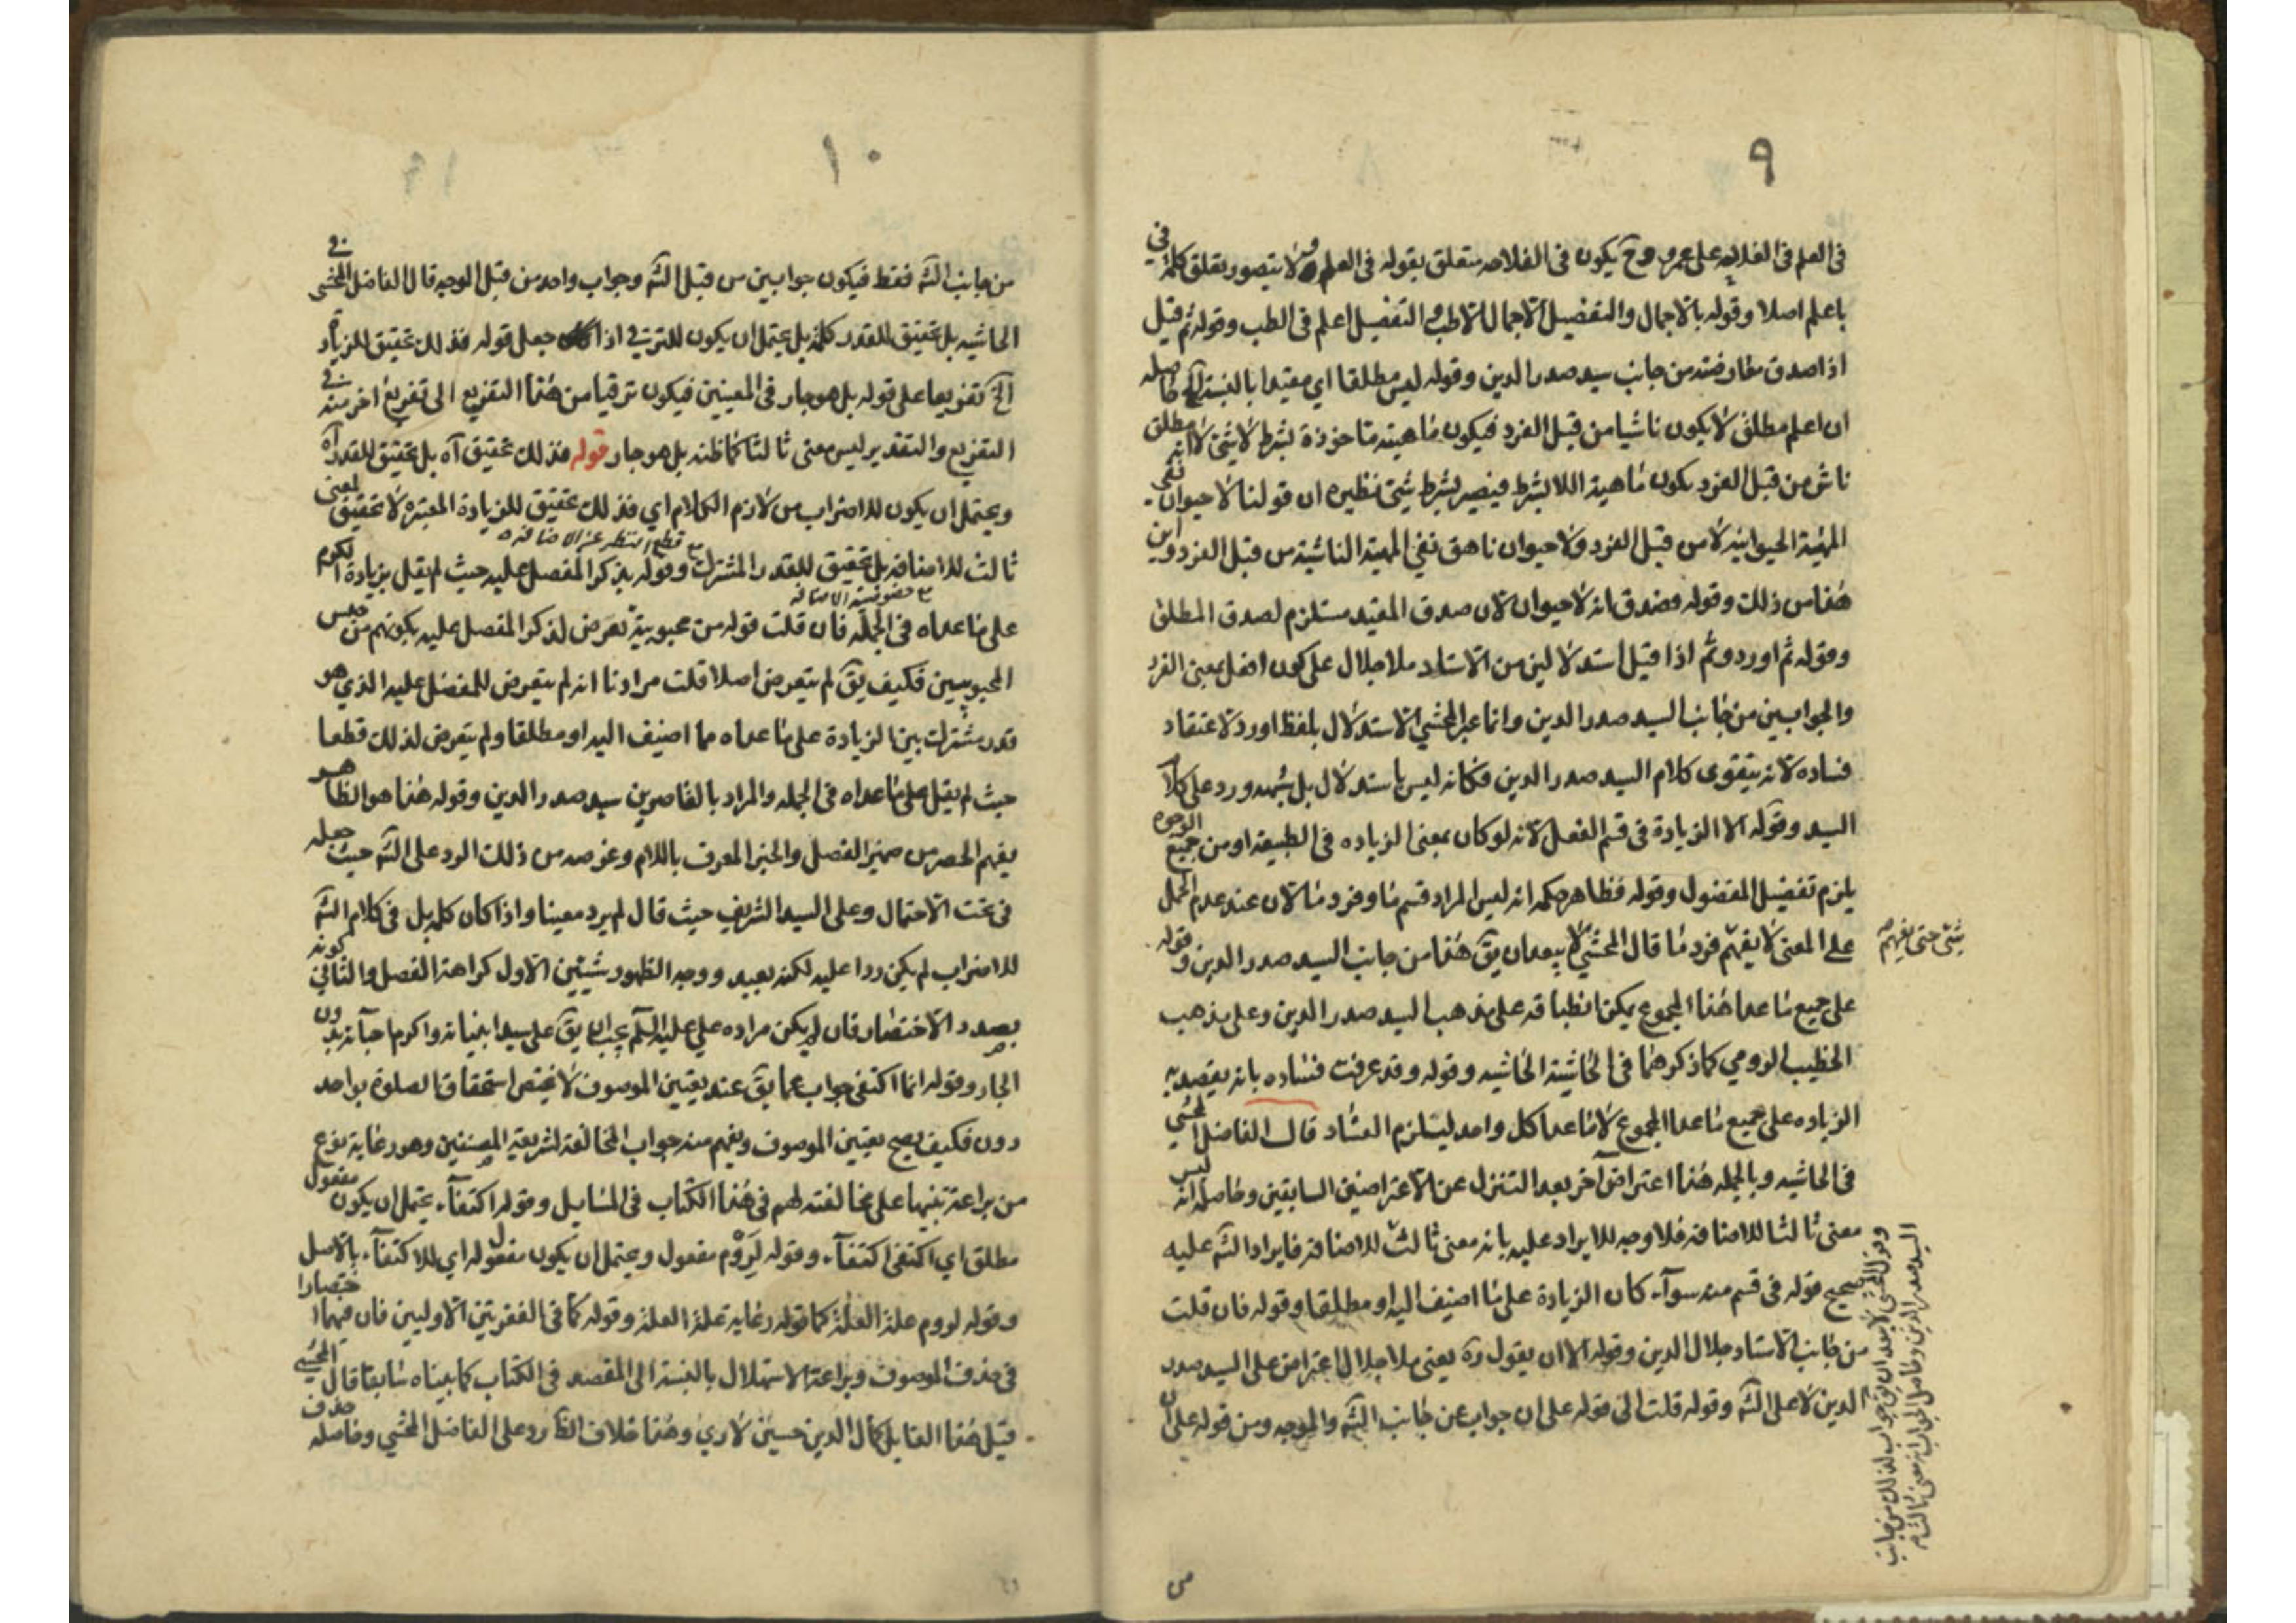 ٩
فى العلم فى الفلاحه على عمرو وح يكون فى الفلاحه متعلق بقوله فى العلم و لا يتصور تعلق كلمة فى
باعلم اصلا وقوله بالاجمال والتفضيل الاجمال الاطب و التفضيل اعلم فى الطب وقوله ثم قيل
اذا صدق معارضته من جانب سيد صدر الدين وقوله ليس مطلقا اي مقيدا بالنسبة الخ حاصله
ان اعلم مطلق لا يكون ناشيا من قبل الفرد فيكون ماهيته ماخوذة بشرط لا شئ لا انه مطلق
ناش من قبل الفرد يكون ماهية اللا بشرط فيصير بشرط شئ نظيره ان قولنا لا حيوان نفى
المهية الحيوانيه لا من قبل الفرد ولا حيوان ناهق نفي المهية الناشية من قبل الفرد واين
هذا من ذلك وقوله فصدق انه لا حيوان لان صدق المقيد مستلزم لصدق المطلق
وقوله ثم اورد وثم اذا قيل استدلالين من الاستاد ملا جلال على كون افعل بمعنى الفرد
والجوابين من جانب السيد صدر الدين وانما عبر المحشي الاستدلال بلفظ اورد لاعتقاد
فساده لانه يتقوى كلام السيد صدر الدين فكانه ليس باستدلال بل شبهه ورد على كلام
السيد وقوله الا الزيادة فى قسم الفعل لانه لو كان بمعنى الزياده فى الطبيعة او من جميع الوجوه
يلزم تفضيل المفضول وقوله فظاهر حكمه انه ليس المراد قسم ما وفرد ما لان عند عدم الحمل
على المعنى لا يفهم فرد ما قال المحشي لا يبعد ان يق هذا من جانب السيد صدر الدين وقوله
شئ حتى يفهم
على جميع ما عدا هذا المجموع يمكن انطباقه على مذهب السيد صدر الدين وعلى مذهب
الخطيب الرومي كما ذكرهما فى الحاشية الحاشيه وقوله وقد عرفت فساده بانه يقصد به
الزياده على جميع ما عدا المجموع لا ما عدا كل واحد ليستلزم الفساد قال الفاضل المحشي
فى الحاشيه وبالجمله هذا اعتراض آخر بعد التنزل عن الاعتراضين السابقين وحاصله انه ليس
معنى ثالثا للاضافه فلا وجه للايراد عليه بانه معنى ثالث للاضافه فايراد الشه عليه
صحيح قوله فى قسم منه سوآء كان الزيادة على ما اضيف اليه او مطلقا وقوله فان قلت
من جانب الاستاد جلال الدين وقوله الا ان يقول ره يعنى ملا جلال اعتراض على السيد صدر
الدين لا على الشه وقوله قلت الى قوله على ان جواب عن جانب الشه والموجه ومن قوله على ان
وقول المحشي لا يبعد ان يق جواب لذلك من جانب
السيد صدر الدين وحاصل الجواب انه معنى ثالثا
من
١٠
من جانب الشه فقط فيكون جوابين من قبل الشه وجواب واحد من قبل الموجه قال الفاضل المحشى فى
الحاشيه بل تحقيق للقدر كلمة بل يحتمل ان يكون للترقي اذا جعل قوله فذلك تحقيق للزيادة
الخ تفريعا على قوله بل هو جار فى المعنيين فيكون ترقيا من هذا التفريع الى تفريع اخر منه فى
التفريع والتقدير ليس معنى ثالثا كما ظنه بل هو جار قوله فذلك تحقيق آه بل تحقيق للقدر آه
ويحتمل ان يكون للاضراب من لازم الكلام اي فذلك تحقيق للزيادة المعتبره لا تحقيق لمعنى
مع قطع النظر عن الاضافه
ثالث للاضافه بل تحقيق للقدر المشترك وقوله بذكر المفصل عليه حيث لم يقل بزيادة الكرم
مع خصوصية الاضافه
على ما عداه فى الجمله فان قلت قوله من محبوبيته تعرض لذكر المفصل عليه بكونهم من جنس
المحبوبين فكيف يق لم يتعرض اصلا قلت مرادنا انه لم يتعرض للمفضل عليه الذي هو
قدر مشترك بين الزيادة على ما عداه مما اضيف اليه او مطلقا ولم يتعرض لذلك قطعا
حيث لم يقل على ما عداه فى الجمله والمراد بالقاصرين سيد صدر الدين وقوله هذا هو الظاهر
يفهم الحصر من ضمير الفصل والخبر المعرف باللام وغرضه من ذلك الرد على الشه حيث جعله
فى تحت الاحتمال وعلى السيد الشريف حيث قال لم يرد معينا واذا كان كلمه بل فى كلام الشه
للاضراب لم يكن ردا عليه لكنه بعيد ووجه الظهور شيئين الاول كراهة الفصل والثاني كونه
بصدد الاختصار فان لم يكن مراده علي عليه السلم يجب ان يق على سيد انبيائه واكرم احبآئه بدون
الجار وقوله انما اكتفى جواب عما يق عند تعيين الموصوف لا يختص استحقاق الصلوة بواحد
دون فكيف يصح تعيين الموصوف ويفهم منه جواب المخالفة لشريعة المصنفين وهو رعاية نوع
من براعة تنبيها على مخالفته لهم فى هذا الكتاب فى المسايل وقوله اكتفآء يحتمل ان يكون مفعول
مطلق اي اكتفى اكتفآء وقوله لزوم مفعول ويحتمل ان يكون مفعول له اي للاكتفآء بالاصل
وقوله لزوم علة العلة كما قوله رعاية علة العلة وقوله كما فى الفقرتين الاوليين فان فيهما اختصارا
فى حذف الموصوف وبراعة الاستهلال بالنسبة الى المقصد فى الكتاب كما بيناه سابقا قال المحشي
قيل هذا القايل كمال الدين حسين لاري وهذا خلاف الظ رد على الفاضل المحشي وحاصله حذف